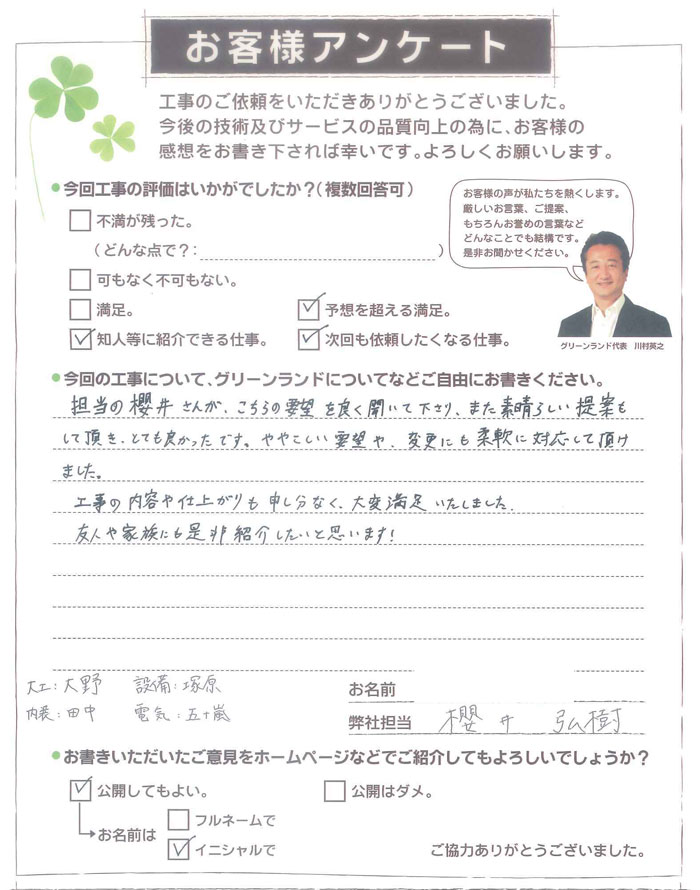 お客様アンケート
工事のご依頼をいただきありがとうございました。
今後の技術及びサービスの品質向上の為に、お客様の
感想をお書き下されば幸いです。よろしくお願いします。
今回工事の評価はいかがでしたか?(複数回答可)
不満が残った。
(どんな点で?: )
可もなく不可もない。
満足。
予想を超える満足。
知人等に紹介できる仕事。
次回も依頼したくなる仕事。
お客様の声が私たちを熱くします。
厳しいお言葉、ご提案、
もちろんお誉めの言葉など
どんなことでも結構です。
是非お聞かせください。
グリーンランド代表 川村英之
今回の工事について、グリーンランドについてなどご自由にお書きください。
担当の櫻井さんが、こちらの要望を良く聞いて下さり、また素晴らしい提案も
して頂き、とても良かったです。ややこしい要望や、変更にも柔軟に対応して頂け
ました。
工事の内容や仕上がりも申し分なく、大変満足いたしました。
友人や家族にも是非紹介したいと思います!
大工:大野 設備:塚原
内装:田中 電気:五十嵐
お名前
弊社担当 櫻井 弘樹
お書きいただいたご意見をホームページなどでご紹介してもよろしいでしょうか?
公開してもよい。
公開はダメ。
お名前は
フルネームで
イニシャルで
ご協力ありがとうございました。